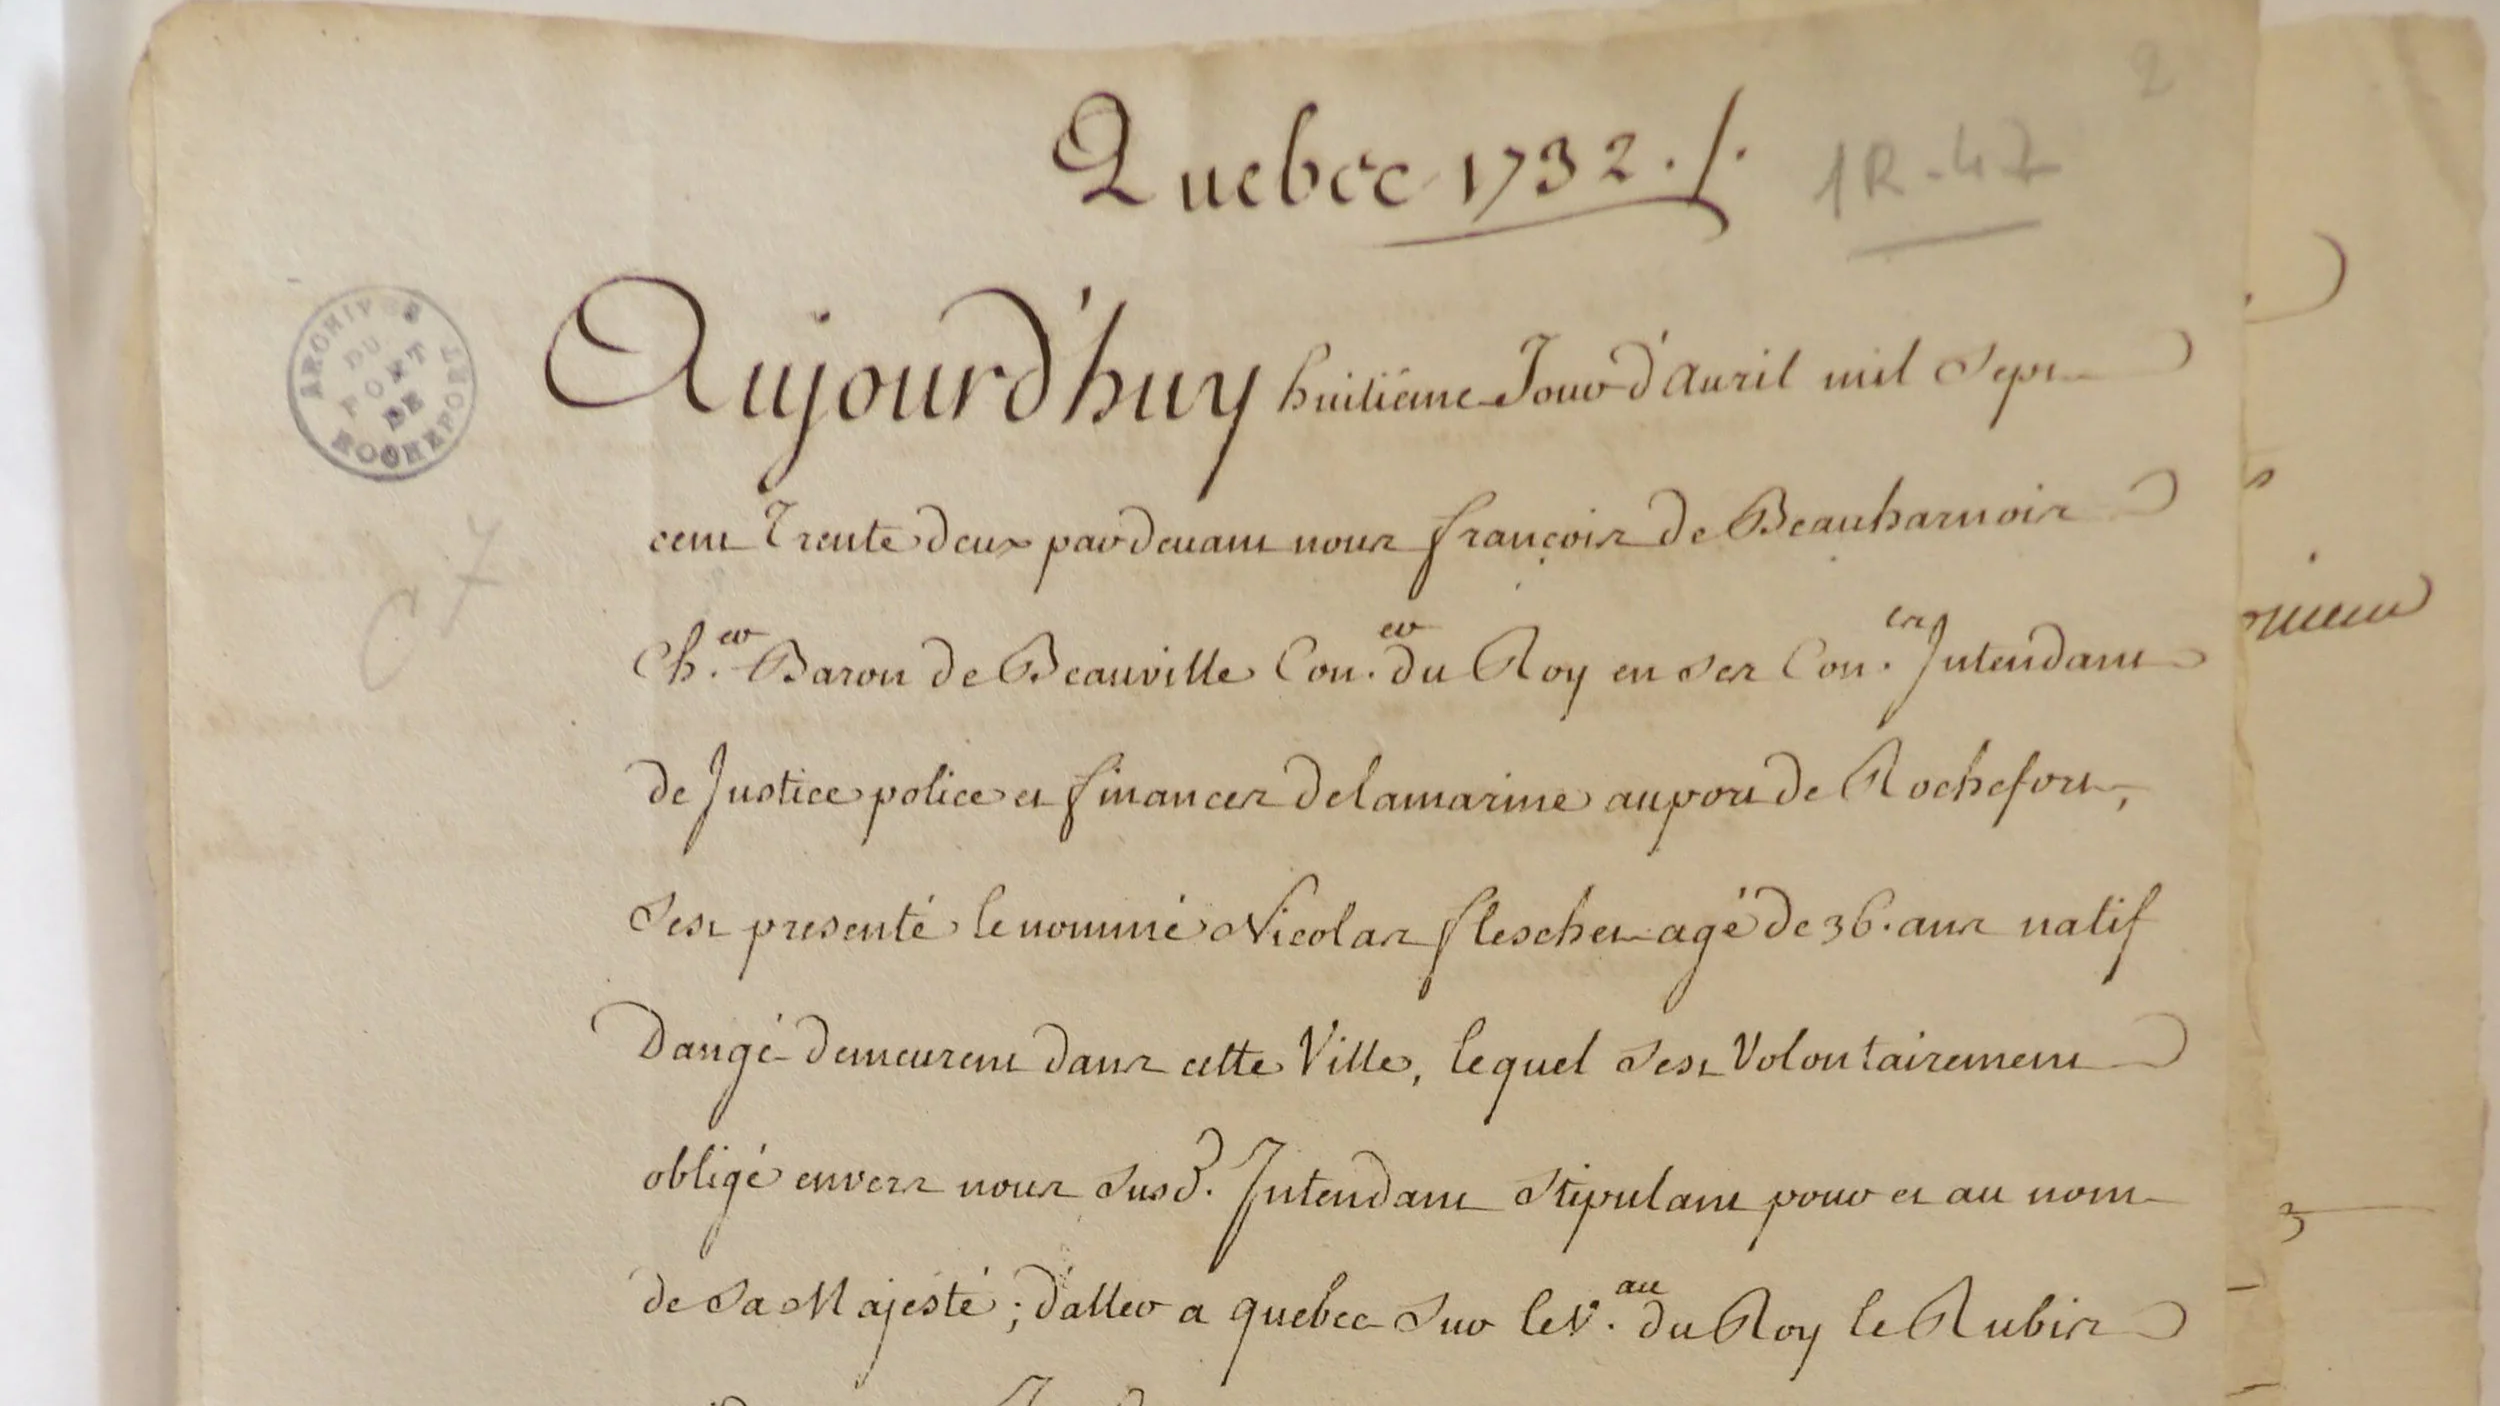 2
Quebec 1732 ./.
1R-47
ARCHIVES DU PORT DE ROCHEFORT
Aujourd'huy huitiéme Jour d'Auril mil Sept
cent Trente deux pardeuant nous françois de Beauharnois
C7
Ch.er Baron de Beauville Con.er du Roy en ses Con.en Intendant
de Justice police et finances delamarine auport de Rochefort,
Sest presenté le nommé Nicolas flescher agé de 36. ans natif
Dangé demeurent dans cette Ville, lequel Sest Volontairement
obligé envers nous susd. Intendant Stipulant pour et au nom
de Sa Majesté; d'aller a quebec Sur le V.au du Roy le Rubis